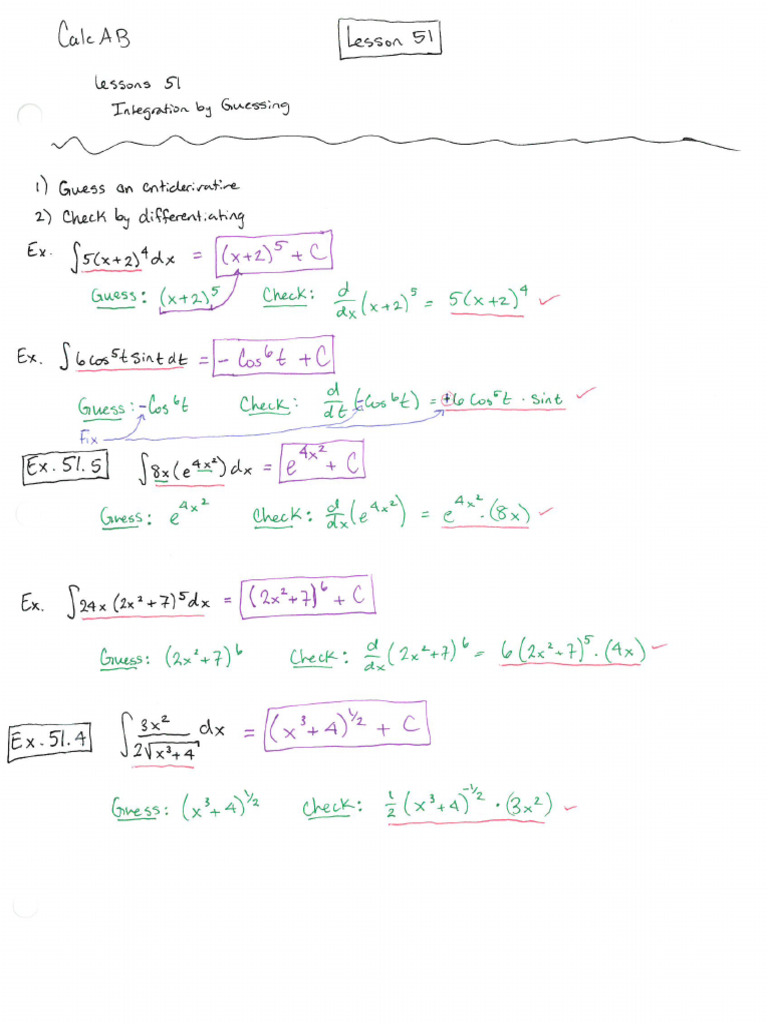 Calc AB
Lesson 51
Lessons 51
Integration by Guessing
1) Guess an antiderivative
2) Check by differentiating
Ex. ∫5(x+2)⁴dx = (x+2)⁵ + C
Guess: (x+2)⁵ Check: d/dx (x+2)⁵ = 5(x+2)⁴ ✓
Ex. ∫6cos⁵t sint dt = - Cos⁶t + C
Guess: -Cos⁶t Check: d/dt (-Cos⁶t) = +6 Cos⁵t · sint ✓
Fix
Ex. 51.5 ∫8x(e^(4x²))dx = e^(4x²) + C
Guess: e^(4x²) Check: d/dx (e^(4x²)) = e^(4x²) · (8x) ✓
Ex. ∫24x(2x²+7)⁵dx = (2x²+7)⁶ + C
Guess: (2x²+7)⁶ Check: d/dx (2x²+7)⁶ = 6(2x²+7)⁵ · (4x) ✓
Ex. 51.4 ∫ 3x²/(2√(x³+4)) dx = (x³+4)^(1/2) + C
Guess: (x³+4)^(1/2) Check: 1/2 (x³+4)^(-1/2) · (3x²) ✓